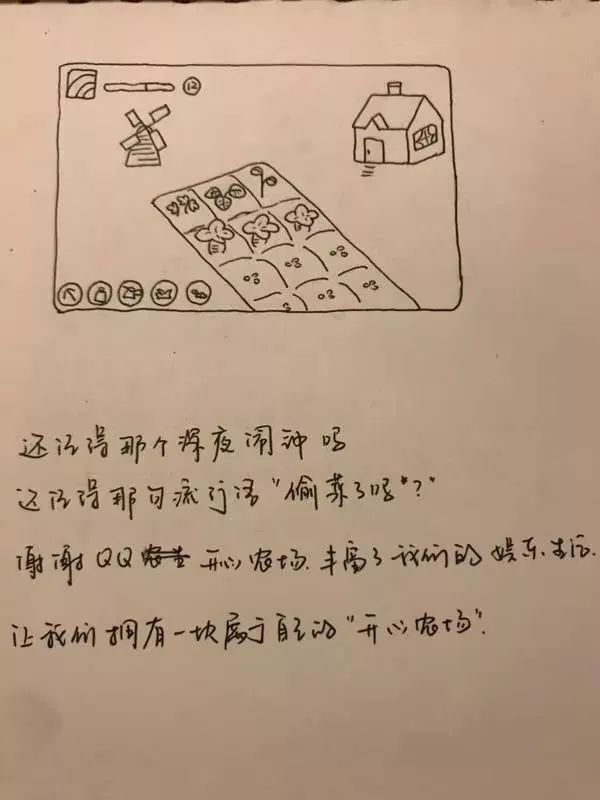 12
还记得那个深夜闹钟吗
还记得那句流行语“偷菜了吗”?”
谢谢QQ 开心农场.丰富了我们的娱乐生活.
让我们拥有一块属于自己的“开心农场”.